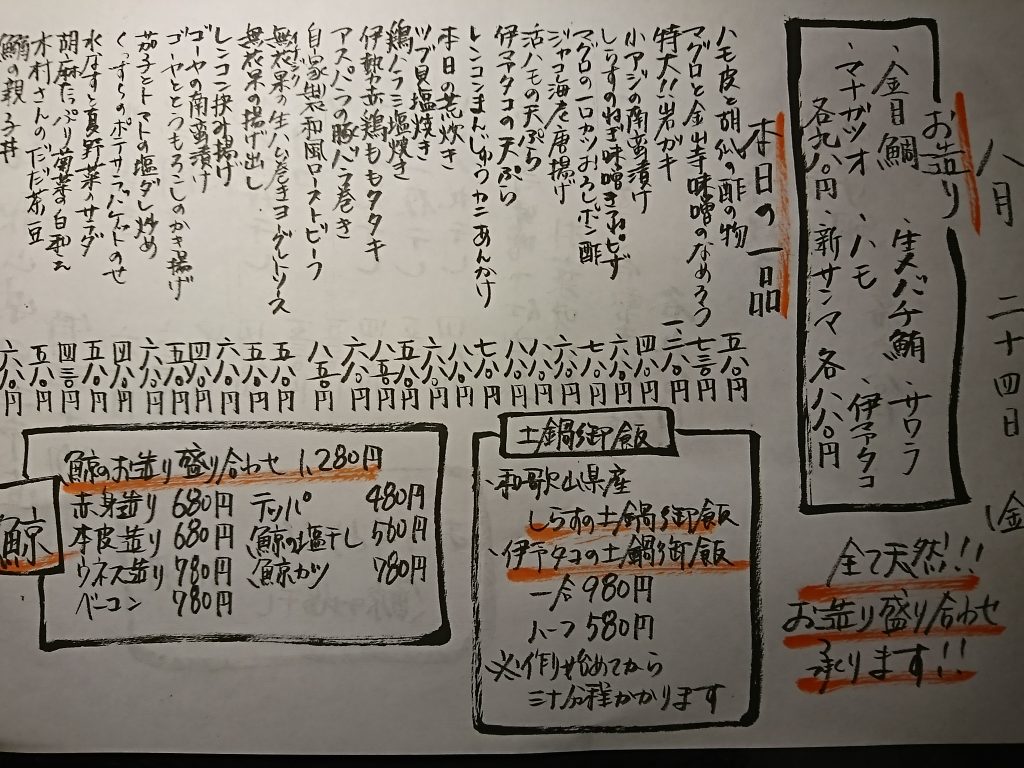 八月二十四日(金)
お造り
、金目鯛、生バチ鮪、サワラ
、マナガツオ、ハモ、伊予タコ
各九八〇円、新サンマ各八八〇円
全て天然!!
お造り盛り合わせ
承ります!!
本日の一品
ハモ皮と胡瓜の酢の物 五八〇円
マグロと金山寺味噌のなめろう 七三〇円
特大!!岩ガキ
小アジの南蛮漬け
しらすのねぎ味噌きつねピザ
マグロの一口カツおろしポン酢
ジャコ海老唐揚げ
活ハモの天ぷら
伊予タコの天ぷら
レンコンまんじゅうカニあんかけ
本日の荒炊き
ツブ貝塩焼き
鶏ハラミ塩焼き
伊勢赤鶏ももタタキ
アスパラの豚バラ巻き
自家製和風ローストビーフ
無花果の生ハム巻きヨーグルトソース
無花果の揚げ出し
レンコン挟み揚げ
ゴーヤの南蛮漬け
ゴーヤととうもろこしのかき揚げ
茄子とトマトの塩ダレ炒め
くんすらのポテサラバケットのせ
水なすと夏野菜のサラダ
胡麻たっぷり菊菜の白和え 四三〇円
木村さんのだだ茶豆 五八〇円
鮪の親子丼 六八〇円
土鍋御飯
、和歌山県産
しらすの土鍋御飯
、伊予タコの土鍋御飯
一合980円
ハーフ580円
※作り始めてから
三十分程かかります
鯨
鯨のお造り盛り合わせ 1,280円
赤身造り 680円 テッパ 480円
本皮造り 680円 鯨の塩干し 560円
ウネス造り 780円 鯨カツ 780円
ベーコン 780円